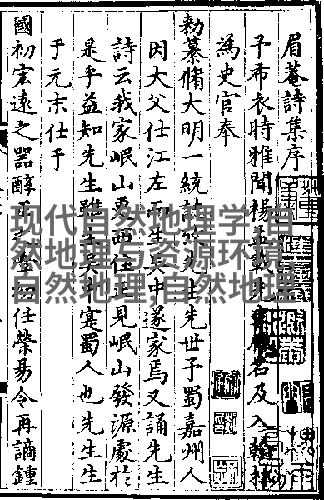 眉菴詩集序
予布衣時雅聞楊孟載名及入翰林
為史官奉
勑纂脩大明一統先生先世予蜀嘉州人
因大父仕江左而生吳中遂家焉又誦先生
詩云我家岷山更西住見岷山發源處於
是乎益知先生雖吳寔蜀人也先生生
于元末仕于
國初宏遠之器醇正之學任滎易令再謫鍾
现代自然地理学,自
然地理与资源环境,
自然地理,自然地理